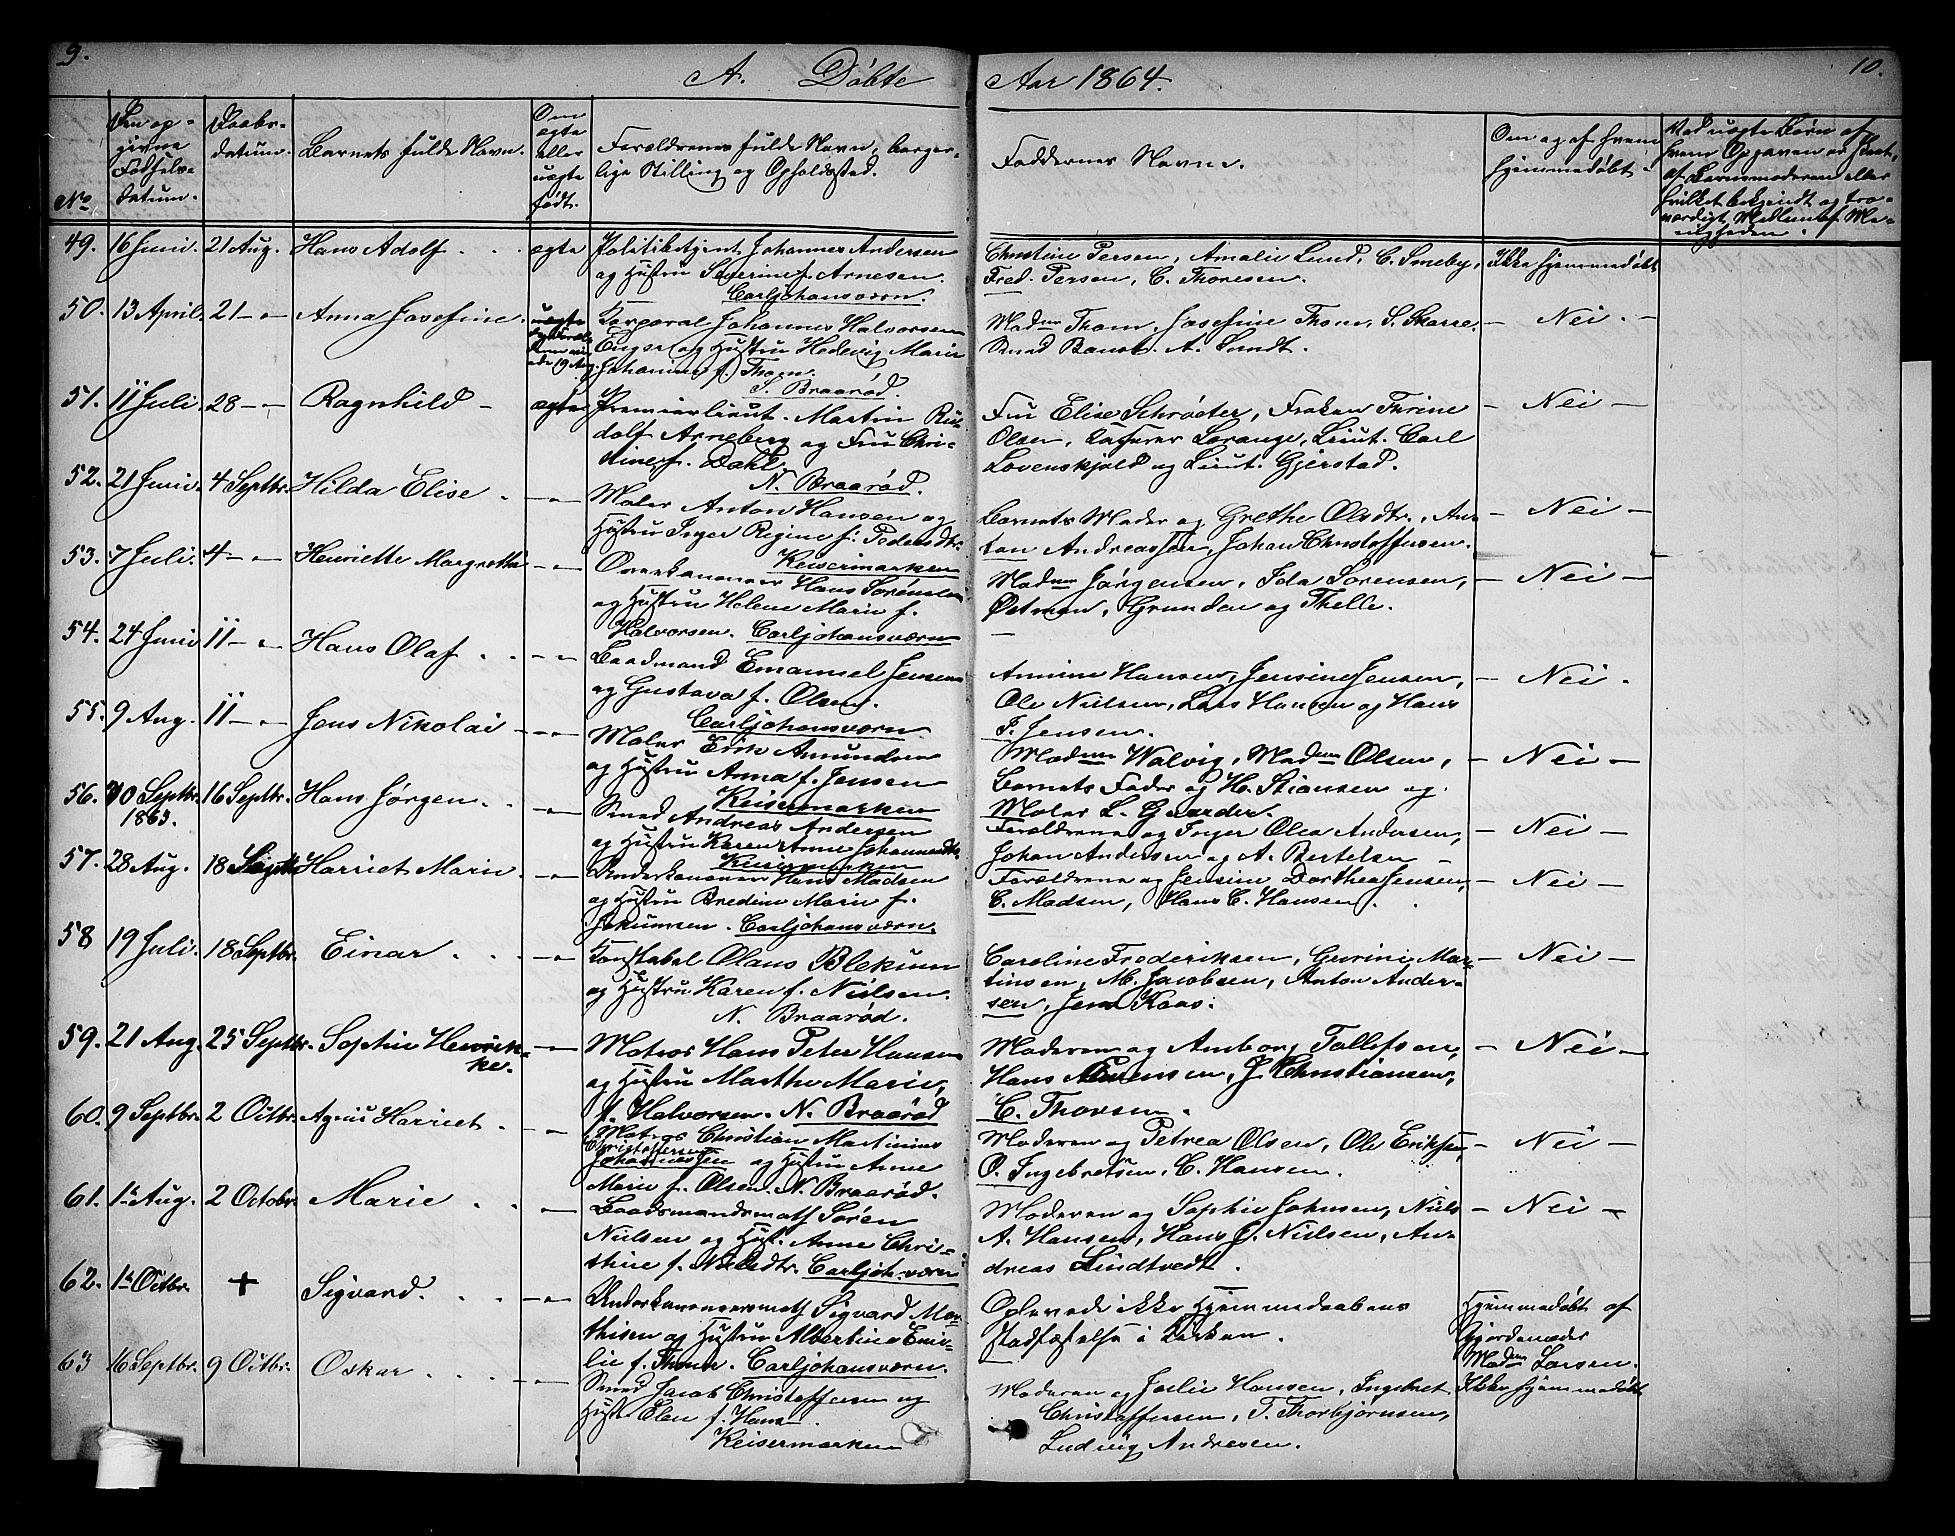 9.
A. Döbte
Aar 1864.
10.
No
Den op-
givne
Fødsels-
datum.
Daabs-
datum.
Barnets fulde Navn.
Om
ægte
eller
uægte
født.
Forældrenes fulde Navn, borger-
lige Stilling og Opholdssted.
Faddernes Navne.
Om og af hvem
hjemmedøbt.
Ved uægte Børn af
hvem Opgaven er skeet,
af Barnemoderen eller
hvilket bekjendt og tro-
værdigt Medlem af Me-
nigheden.
49. 16 Juni. 21 Aug. Hans Adolf . . . ægte Politibetjent Johannes Andersen
og Hustru Severine f. Arnesen.
Carljohansværn.
Christine Persen, Amalie Lund, C. Smeby,
Fred. Persen, C. Thoresen.
Ikke hjemmedøbt
50. 13 April. 21 - " - Anna Josefine . uægte Korporal Johannes Halvorsen
Enger og Hustru Hedevig Marie
Johanine f. Thom.
S. Braarød.
Madme Thom, Josefine Thom, S. Skarre,
Smed Baust. A. Lundt.
- Nei. -
51. 11 Juli. 28 - - Ragnhild - ægte Premierlieut. Martin Ru-
dolf Arneberg og Fru Chri-
stine f. Dahl.
N. Braarød.
Fru Elise Schrøeter, Frøken Thrine
Olsen, Kasserer Lorange, Lieut. Carl
Lovenskjold og Lieut. Gjerstad.
- Nei -
52. 21 Juni. 4 Septbr. Hilda Elise . - " - Maler Anton Hansen og
Hustru Inger Regine f. Pedersdtr.
Keisermarken
Barnets Moder og Grethe Olsdtr., An-
ton Andreassen, Johan Christoffersen.
- Nei -
53. 7 Juli. 4 - " - Henriette Margrethe - " - Overkanoneer Hans Sørensen
og Hustru Helene Marie f.
Halvorsen. Carljohansværn
Madme Jørgensen, Ida Sorensen,
Østmoen, Grunden og Thelle.
- Nei -
54. 24 Juni 11 - " - Hans Olaf . . - " - Baadmand Emanuel Jensen
og Gustava f. Olsen.
Carljohansværn
Annine Hansen, Jensine Jensen,
Ole Nielsen, Lars Hansen og Hans
J. Jensen.
- Nei .
55. 9 Aug. 11 - " - Jens Nikolai - - " - Maler Erik Amundsen
og Hustru Anna f. Jensen
Keisermarken
Madme Walvig, Madme Olsen,
Barnets Fader og H. Stiansen og
Maler L. Gaarder.
- Nei -
56. 30 Septbr.
1863.
16 Septbr. Hans Jørgen. . - " - Smed Andreas Andersen
og Hustru Karen Anne Johannesdtr.
Keisermarken
Forældrene og Inger Olea Andersen,
Johan Andersen og A. Bertelsen
- Nei -
57. 28 Aug. 18 Septbr Harriet Marie . - " - Underkanoneer Hans Madsen
og Hustru Bredine Marie f.
Carljohansværn.
Forældrene og Jensine Dorthea Jensen,
C. Madsen, Hans C. Hansen.
- Nei -
58 19 Juli. 18 Septbr. Einar . . . - " - Konstabel Olaus Blekum
og Hustru Karen f. Nielsen.
N. Braarød.
Caroline Frederiksen, Gurine Mar-
tinsen, M. Jacobsen, Anton Ander-
sen, Jens Kaas.
- Nei -
59. 21 Aug. 25 Septbr. Sophie Henrik-
ke.
- " - Matros Hans Peter Hansen
og Hustru Marthe Marie,
f. Halvorsen. N. Braarød
Moderen og Amborg Tollefsen,
Hans Sorensen, J. Christiansen,
C. Thorsen.
- Nei -
60. 9 Septbr. 2 Octbr. Agnes Harriet . - " - Matros Christian Martinius
Christoffersen
Johannessen og Hustru Anne
Marie f. Olsen. N. Braarød.
Moderen og Petrea Olsen, Ole Eriksen,
O. Ingebretsen, C. Hansen.
- Nei -
61. 1ste Aug. 2 Octobr. Marie . . - " - Baadsmandsmath Søren
Nielsen og Hust. Anne Chri-
stine f. Nielsdtr. Carljoh.-værn
Moderen og Sophie Johnsen, Niels
A. Hansen, Hans C. Nielsen, An-
dreas Lindtvedt.
- Nei -
62. 1ste Octbr. + Sigvard. . . - " - Underkanoneersmath Sigvard Mat-
thisen og Hustru Albertine Emi-
lie f. Thom. Carljohansværn.
Oplevede ikke Hjemmedaabens
stadfæstelse i Kirken.
Hjemmedøbt af
Gjordemoder
Madme Larsen.
63 16 Septbr. 9 Octbr. Oskar . . . . - " - Smed Jacob Christoffersen og
Hustr. Elen f. Hans
Keisermarken
Moderen og Joslie Hansen, Ingebret
Christoffersen, T. Thorbjørnsen,
Ludvig Andresen.
Ikke hjemmedøbt